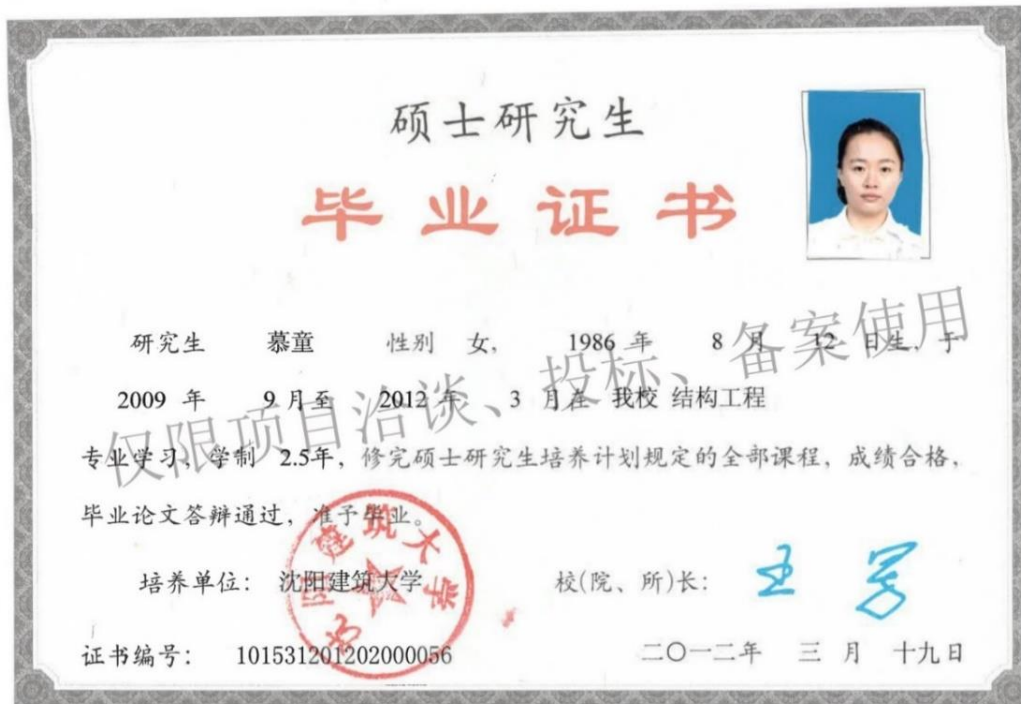 硕士研究生
毕业证书
研究生 慕童 性别 女, 1986 年 8 月 12 日生, 于
2009 年 9 月至 2012 年 3 月在 我校 结构工程
专业学习, 学制 2.5年, 修完硕士研究生培养计划规定的全部课程, 成绩合格,
毕业论文答辩通过, 准予毕业。
培养单位: 沈阳建筑大学 校(院、所)长:
证书编号: 101531201202000056 二〇一二年 三 月 十九日
仅限项目洽谈、投标、备案使用
沈阳建筑大学